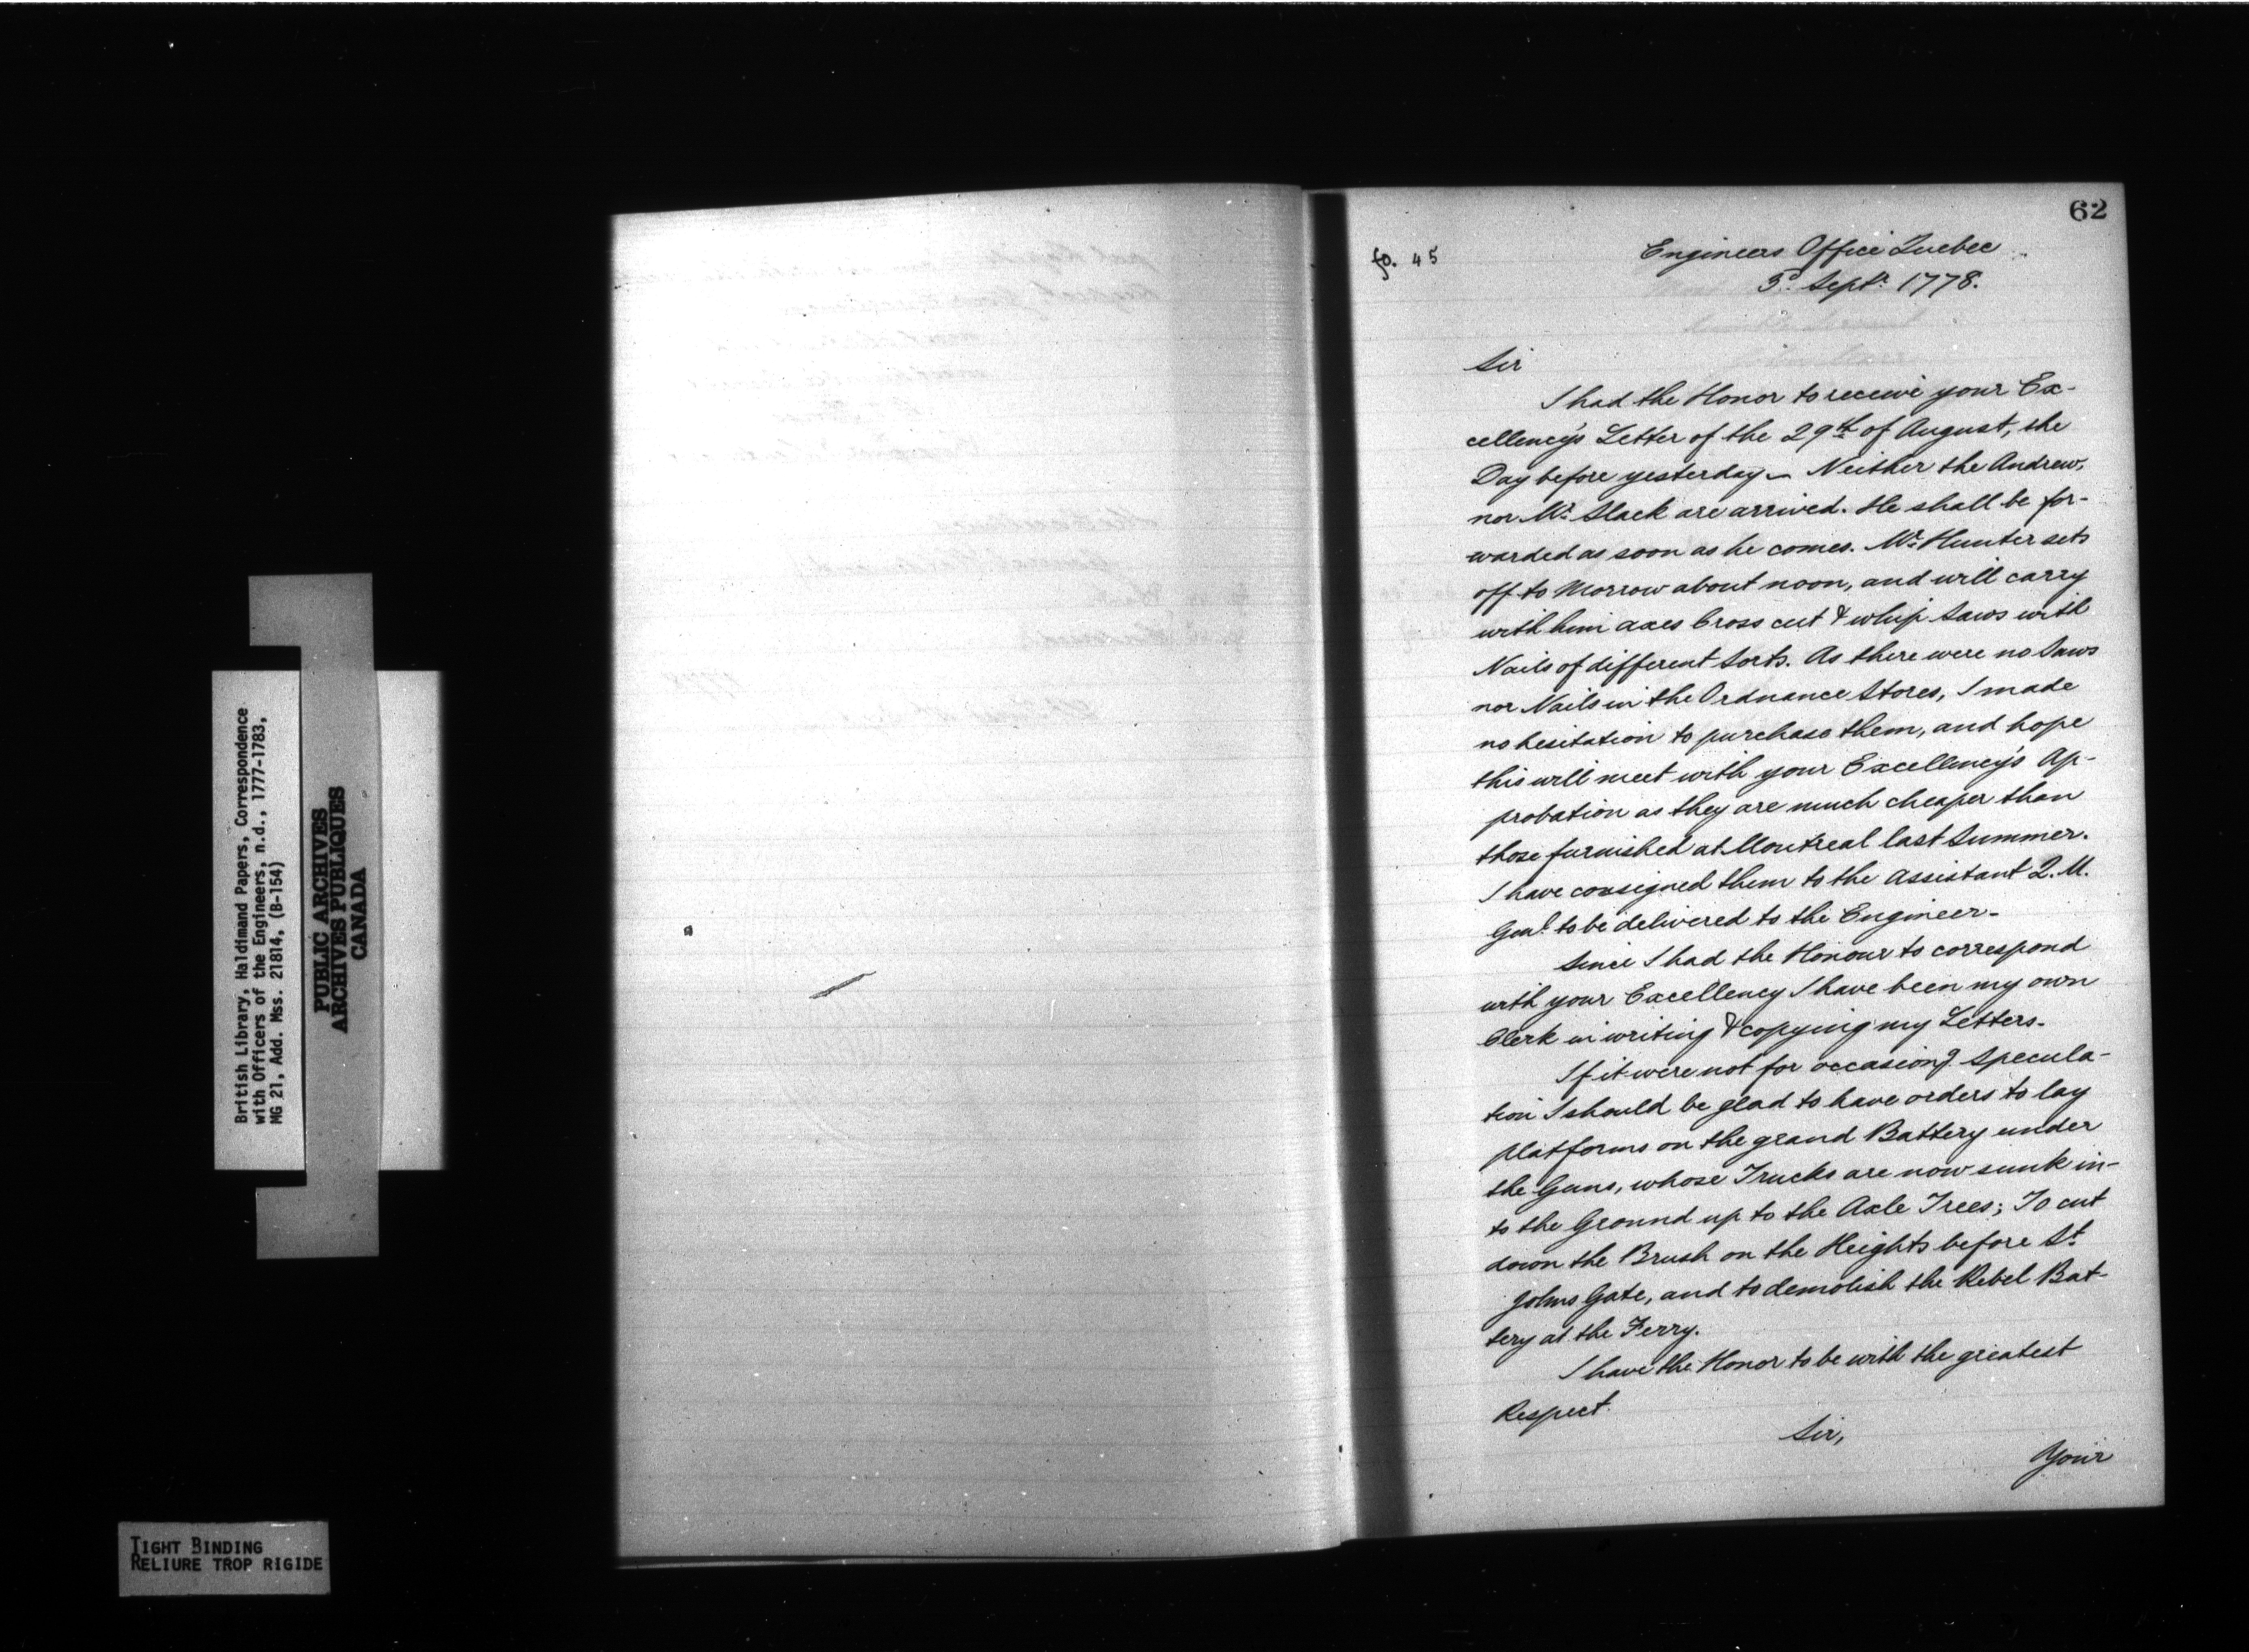 62
fo. 45
Engineers Office Quebec
3d Septr. 1778.
Sir
I had the Honor to receive your Ex-
cellency's Letter of the 29th of August, the
Day before yesterday — Neither the Andrew,
nor Mr. Slack are arrived. He shall be for-
warded as soon as he comes. Mr. Hunter sets
off to Morrow about noon, and will carry
with him axes Cross cut & whip Saws with
Nails of different Sorts. As there were no Saws
nor Nails in the Ordnance Stores, I made
no hesitation to purchase them, and hope
this will meet with your Excellency's Ap-
probation as they are much cheaper than
those furnished at Montreal last Summer.
I have consigned them to the Assistant Q. M.
Genl. to be delivered to the Engineer-
Since I had the Honour to correspond
with your Excellency I have been my own
Clerk in writing & copying my Letters.
If it were not for occasiong Specula-
tion I should be glad to have orders to lay
platforms on the grand Battery under
the Guns, whose Trucks are now sunk in-
to the Ground up to the Axle Trees; To cut
down the Brush on the Heights before St.
Johns Gate, and to demolish the Rebel Bat-
tery at the Ferry.
I have the Honor to be with the greatest
Respect.
Sir,
Your
British Library, Haldimand Papers, Correspondence
with Officers of the Engineers, n.d., 1777-1783,
MG 21, Add. Mss. 21814, (B-154)
PUBLIC ARCHIVES
ARCHIVES PUBLIQUES
CANADA
TIGHT BINDING
RELIURE TROP RIGIDE